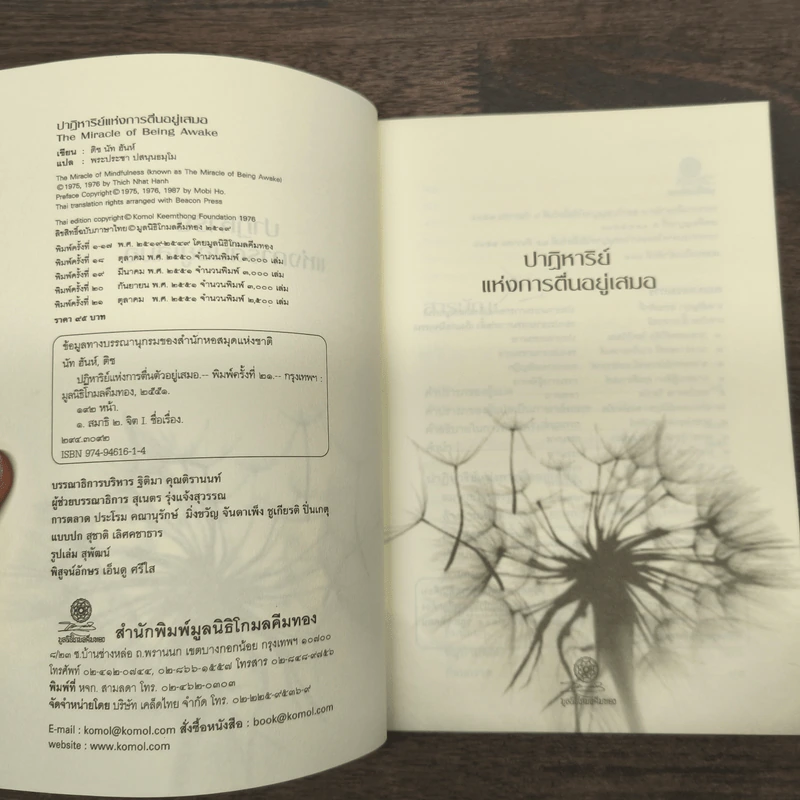 ปาฏิหาริย์แห่งการตื่นอยู่เสมอ
The Miracle of Being Awake
เขียน : ติช นัท ฮันห์
แปล : พระประชา ปสนฺนธมฺโม
The Miracle of Mindfulness (known as The Miracle of Being Awake)
©1975, 1976 by Thich Nhat Hanh
Preface Copyright©1975, 1976, 1987 by Mobi Ho.
Thai translation rights arranged with Beacon Press
Thai edition copyright© Komol Keemthong Foundation 1976
ลิขสิทธิ์ฉบับภาษาไทย©มูลนิธิโกมลคีมทอง ๒๕๑๙
พิมพ์ครั้งที่ ๑-๑๗ พ.ศ. ๒๕๑๙-๒๕๔๙ โดยมูลนิธิโกมลคีมทอง
พิมพ์ครั้งที่ ๑๘ ตุลาคม พ.ศ. ๒๕๕๐ จำนวนพิมพ์ ๓,๐๐๐ เล่ม
พิมพ์ครั้งที่ ๑๙ มีนาคม พ.ศ. ๒๕๕๑ จำนวนพิมพ์ ๓,๐๐๐ เล่ม
พิมพ์ครั้งที่ ๒๐ กันยายน พ.ศ. ๒๕๕๑ จำนวนพิมพ์ ๓,๐๐๐ เล่ม
พิมพ์ครั้งที่ ๒๑ ตุลาคม พ.ศ. ๒๕๕๑ จำนวนพิมพ์ ๒,๕๐๐ เล่ม
ราคา ๙๕ บาท
ข้อมูลทางบรรณานุกรมของสำนักหอสมุดแห่งชาติ
นัท ฮันห์, ติช
ปฏิหาริย์แห่งการตื่นตัวอยู่เสมอ.-- พิมพ์ครั้งที่ ๒๑.-- กรุงเทพฯ :
มูลนิธิโกมลคีมทอง, ๒๕๕๑.
๑๙๒ หน้า.
๑. สมาธิ ๒. จิต I. ชื่อเรื่อง.
๒๙๔.๓๐๙๒
ISBN 974-94616-1-4
บรรณาธิการบริหาร ฐิติมา คุณติรานนท์
ผู้ช่วยบรรณาธิการ สุเนตร รุ่งแจ้งสุวรรณ
การตลาด ประโรม คณานุรักษ์ มิ่งขวัญ จันดาเพ็ง ชูเกียรติ ปิ่นเกตุ
แบบปก สุชาติ เลิศคชาธาร
รูปเล่ม สุพัฒน์
พิสูจน์อักษร เอ็นดู ศรีใส
มูลนิธิโกมลคีมทอง
สำนักพิมพ์มูลนิธิโกมลคีมทอง
๘/๒๓ ซ.บ้านช่างหล่อ ถ.พรานนก เขตบางกอกน้อย กรุงเทพฯ ๑๐๗๐๐
โทรศัพท์ ๐๒-๔๑๒-๐๗๔๔, ๐๒-๘๖๖-๑๕๕๗ โทรสาร ๐๒-๘๔๘-๙๗๕๖
พิมพ์ที่ หจก. สามลดา โทร. ๐๒-๔๖๒-๐๓๐๓
จัดจำหน่ายโดย บริษัท เคล็ดไทย จำกัด โทร. ๐๒-๒๒๕-๙๕๓๖-๙
E-mail : komol@komol.com สั่งซื้อหนังสือ : book@komol.com
website : www.komol.com
ปาฏิหาริย์
แห่งการตื่นอยู่เสมอ
มูลนิธิโกมลคีมทอง